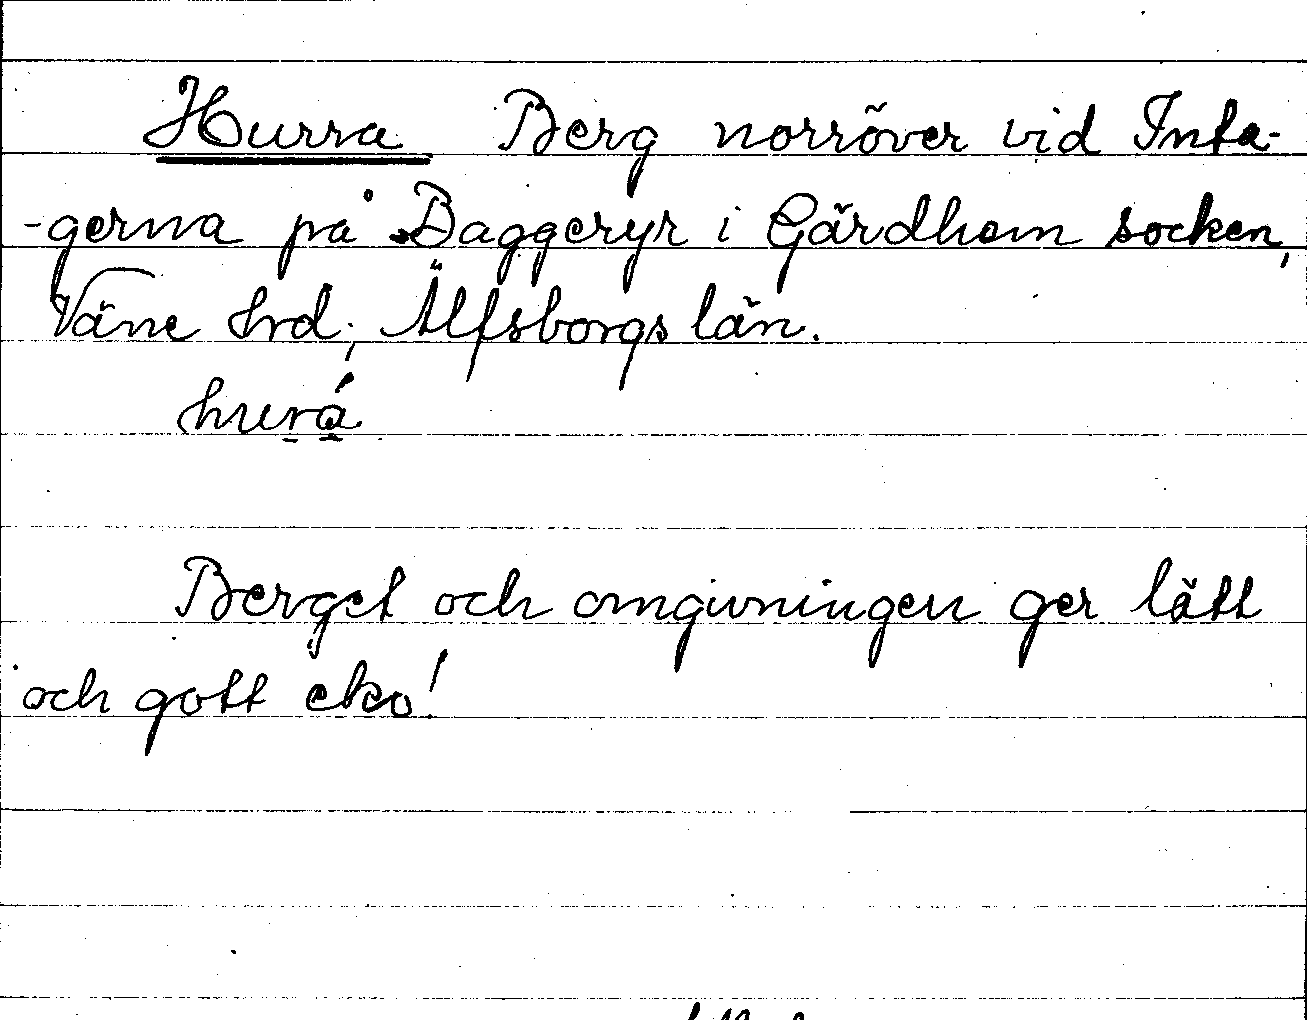 Hurra Berg norröver vid Inta-
-gerna på Baggeryr i Gärdhem socken,
Väne hrd; Älfsborgs län.
hurá
Berget och omgivningen ger lätt
och gott eko!